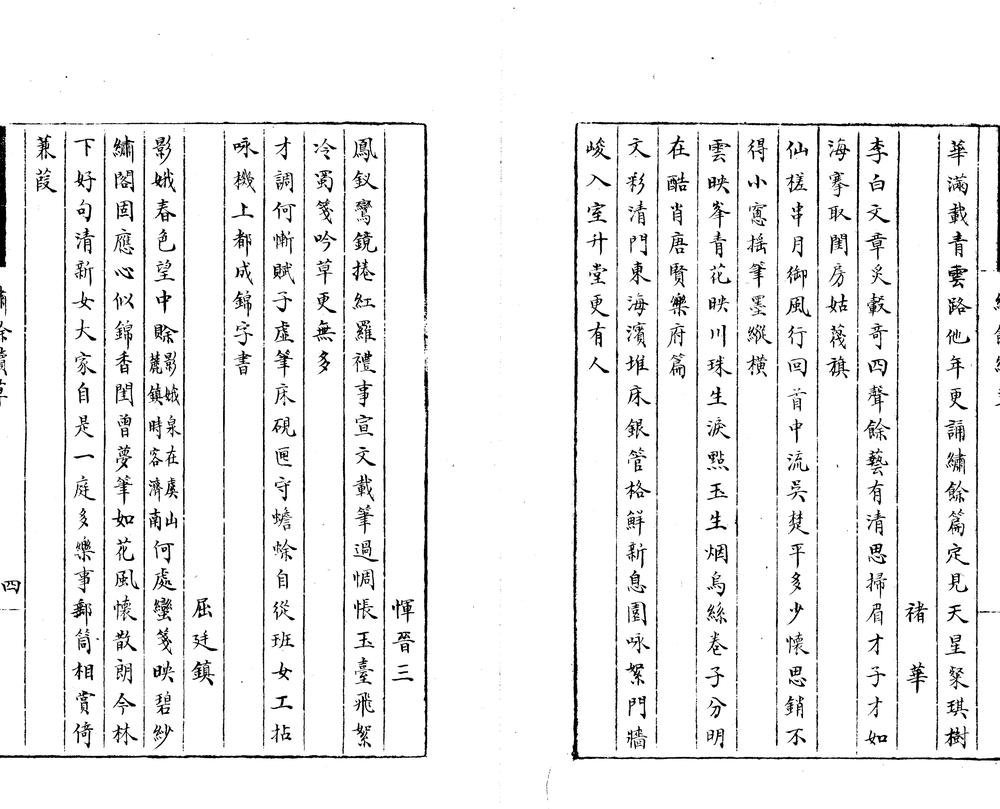 華滿載青雲路他年更誦繡餘篇定見天星聚琪樹
禇華
李白文章炙轂奇四聲餘藝有清思掃眉才子才如
海搴取閨房姑蔑旗
仙槎串月御風行回首中流吳楚平多少懷思銷不
得小窻摇筆墨縱横
雲映峯青花映川珠生淚㸃玉生烟烏絲卷子分明
在酷肖唐賢樂府篇
文彩清門東海濱堆床銀管格鮮新息園咏絮門牆
峻入室升堂更有人
惲晉三
鳳釵鸞鏡捲紅羅禮事宣文載筆過惆悵玉臺飛絮
冷蜀箋吟草更無多
才調何慚賦子虚筆床硯匣守蟾蜍自從班女工拈
咏機上都成錦字書
屈廷鎮
影娥春色望中賖影娥泉在虞山麓鎮時客濟南何處蠻箋映碧紗
繡閣固應心似錦香閨曾夢筆如花風懷散朗今林
下好句清新女大家自是一庭多樂事郵筒相賞倚
蒹葭
四